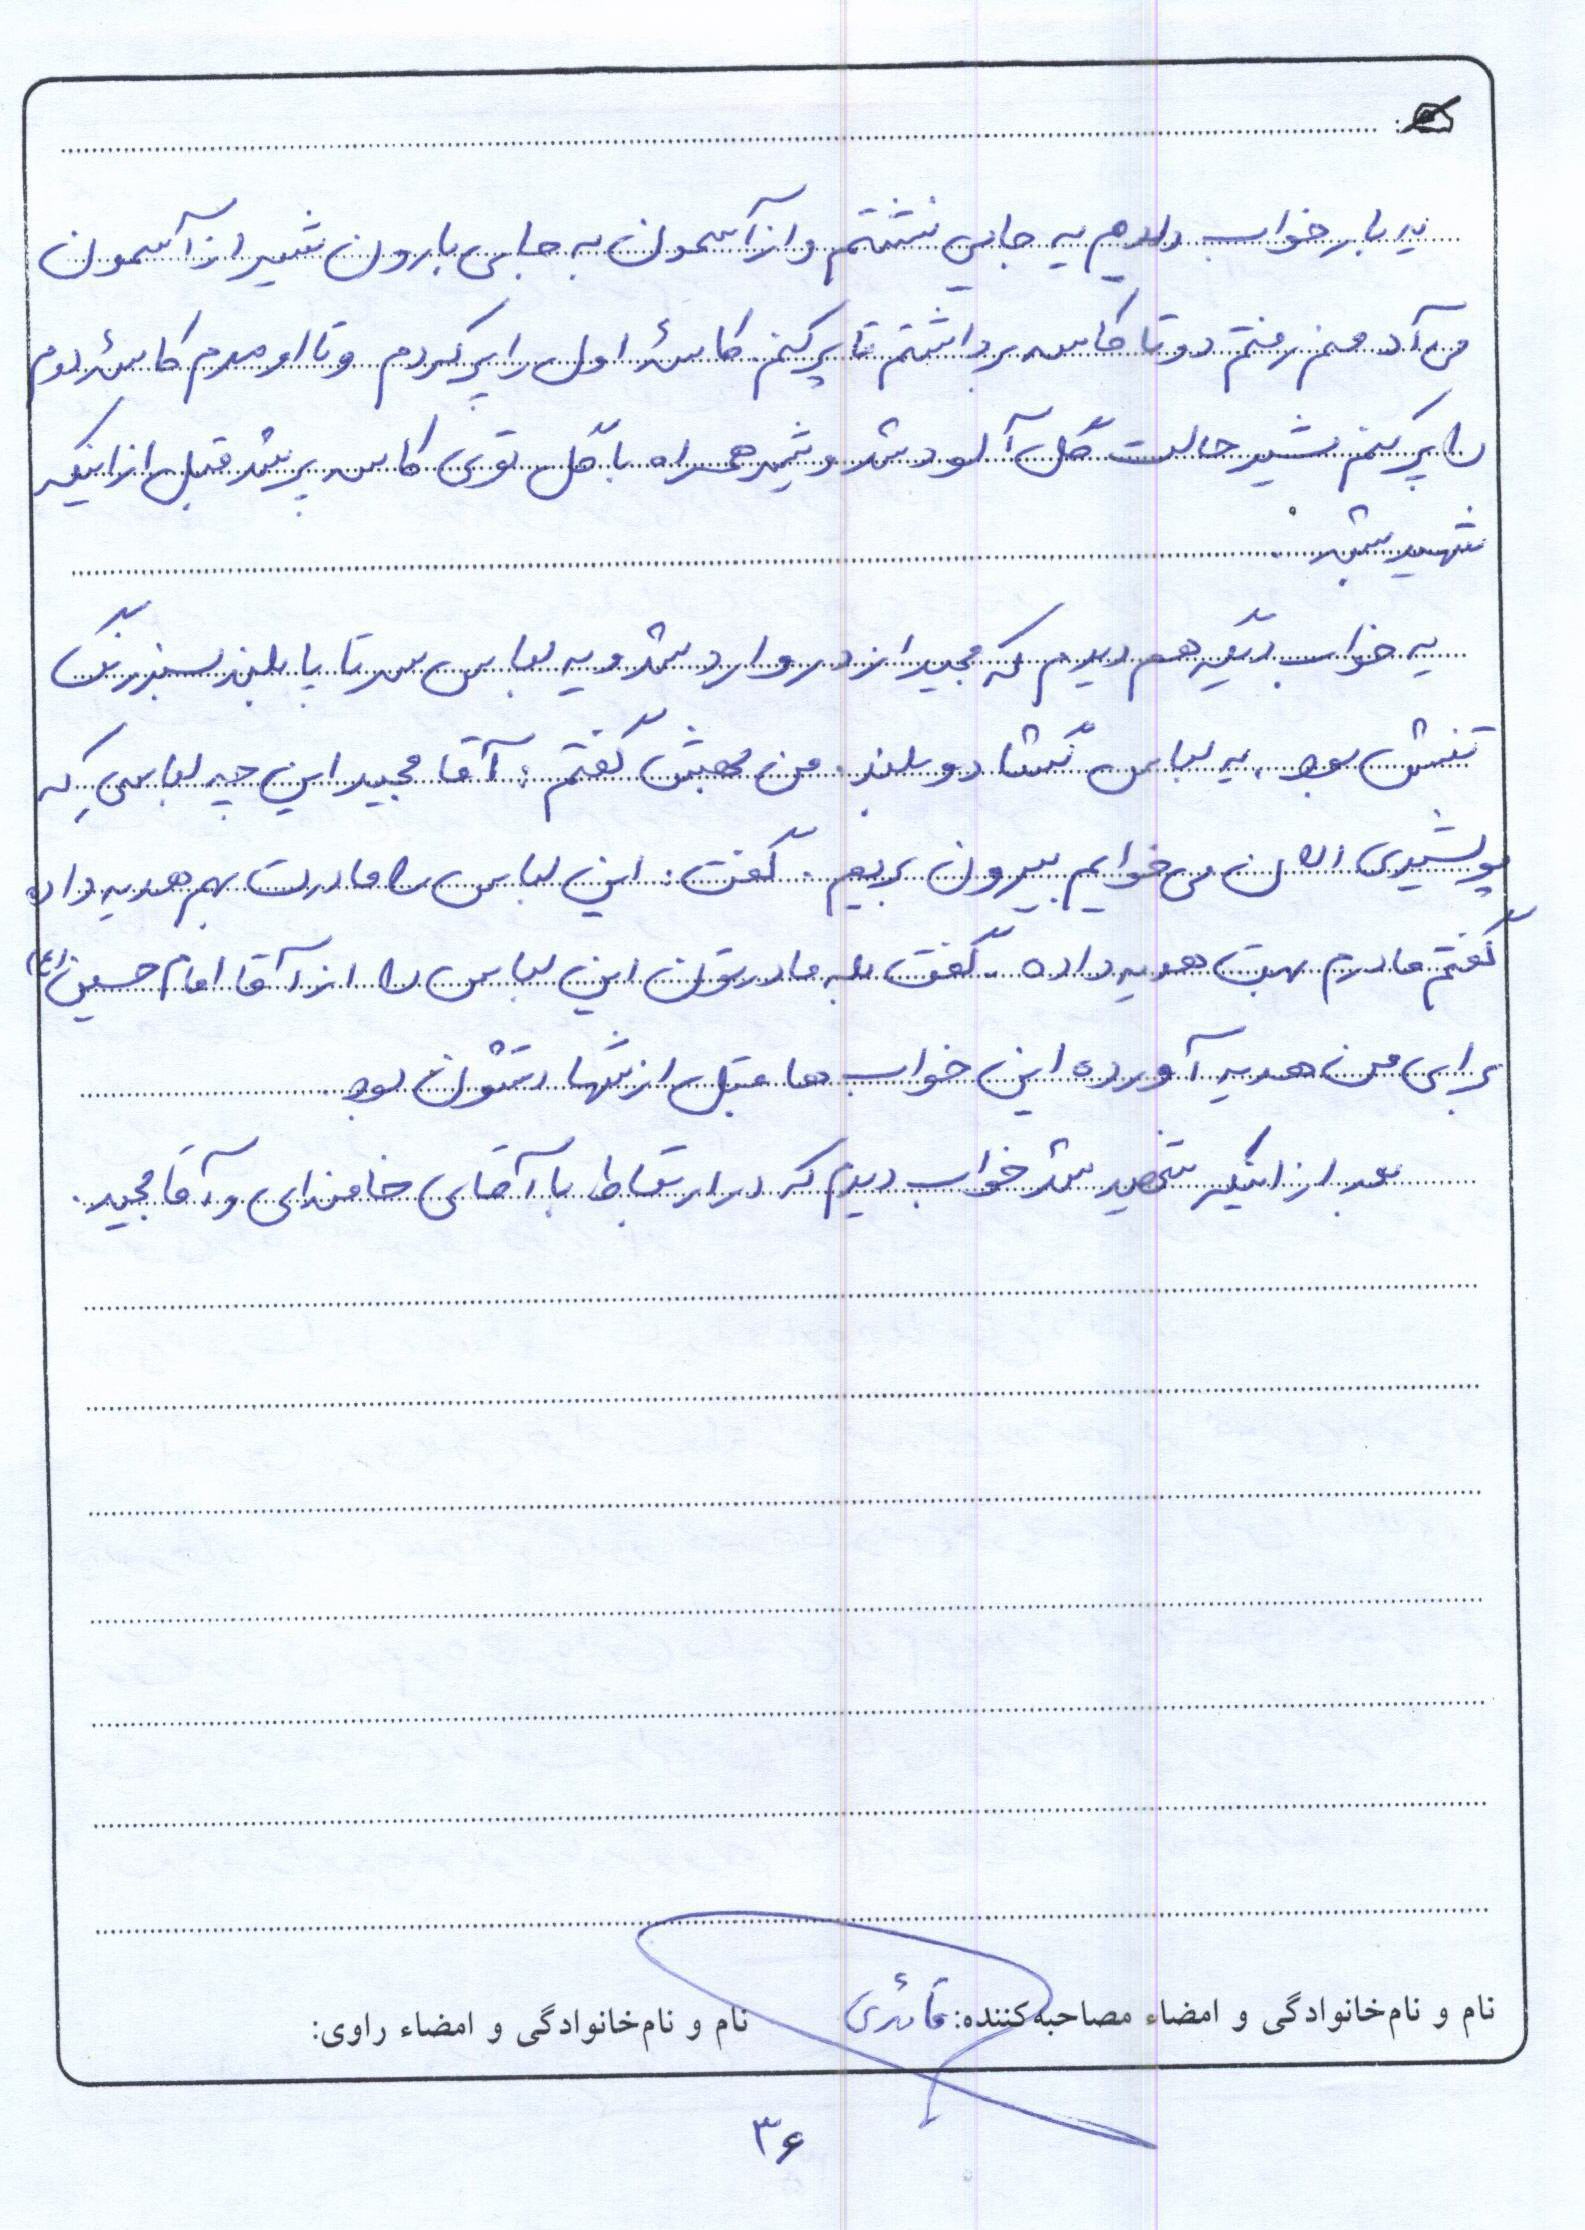 یه بار خواب دیدم یه جایی نشستم و از آسمون به جای بارون شیر از آسمون
می‌آد منم رفتم دو تا کاسه برداشتم تا پر کنم کاسهٔ اول را پر کردم و تا اومدم کاسهٔ دوم
را پر کنم شیر حالت گل آلود شد و شیر همراه با گل توی کاسه پر شد قبل از اینکه
شهید بشه.
یه خواب دیگه هم دیدم که مجید از در وارد شد و یه لباس سر تا پا بلند سبز رنگ
تنش بود، یه لباس گشاد و بلند. من بهش گفتم: آقا مجید این چه لباسی که
پوشیدی الان می‌خوایم بیرون بریم. گفت: این لباس را مادرت بهم هدیه داده
گفتم مادرم بهت هدیه داده. گفت بله مادرتون این لباس را از آقا امام حسین (ع)
برای من هدیه آورده این خواب ها قبل از شهادتشون بود.
بعد از اینکه شهید شد خواب دیدم که در ارتباط با آقای خامنه‌ای و آقا مجید.
نام و نام‌خانوادگی و امضاء مصاحبه‌کننده: قائدی نام و نام‌خانوادگی و امضاء راوی:
۳۶